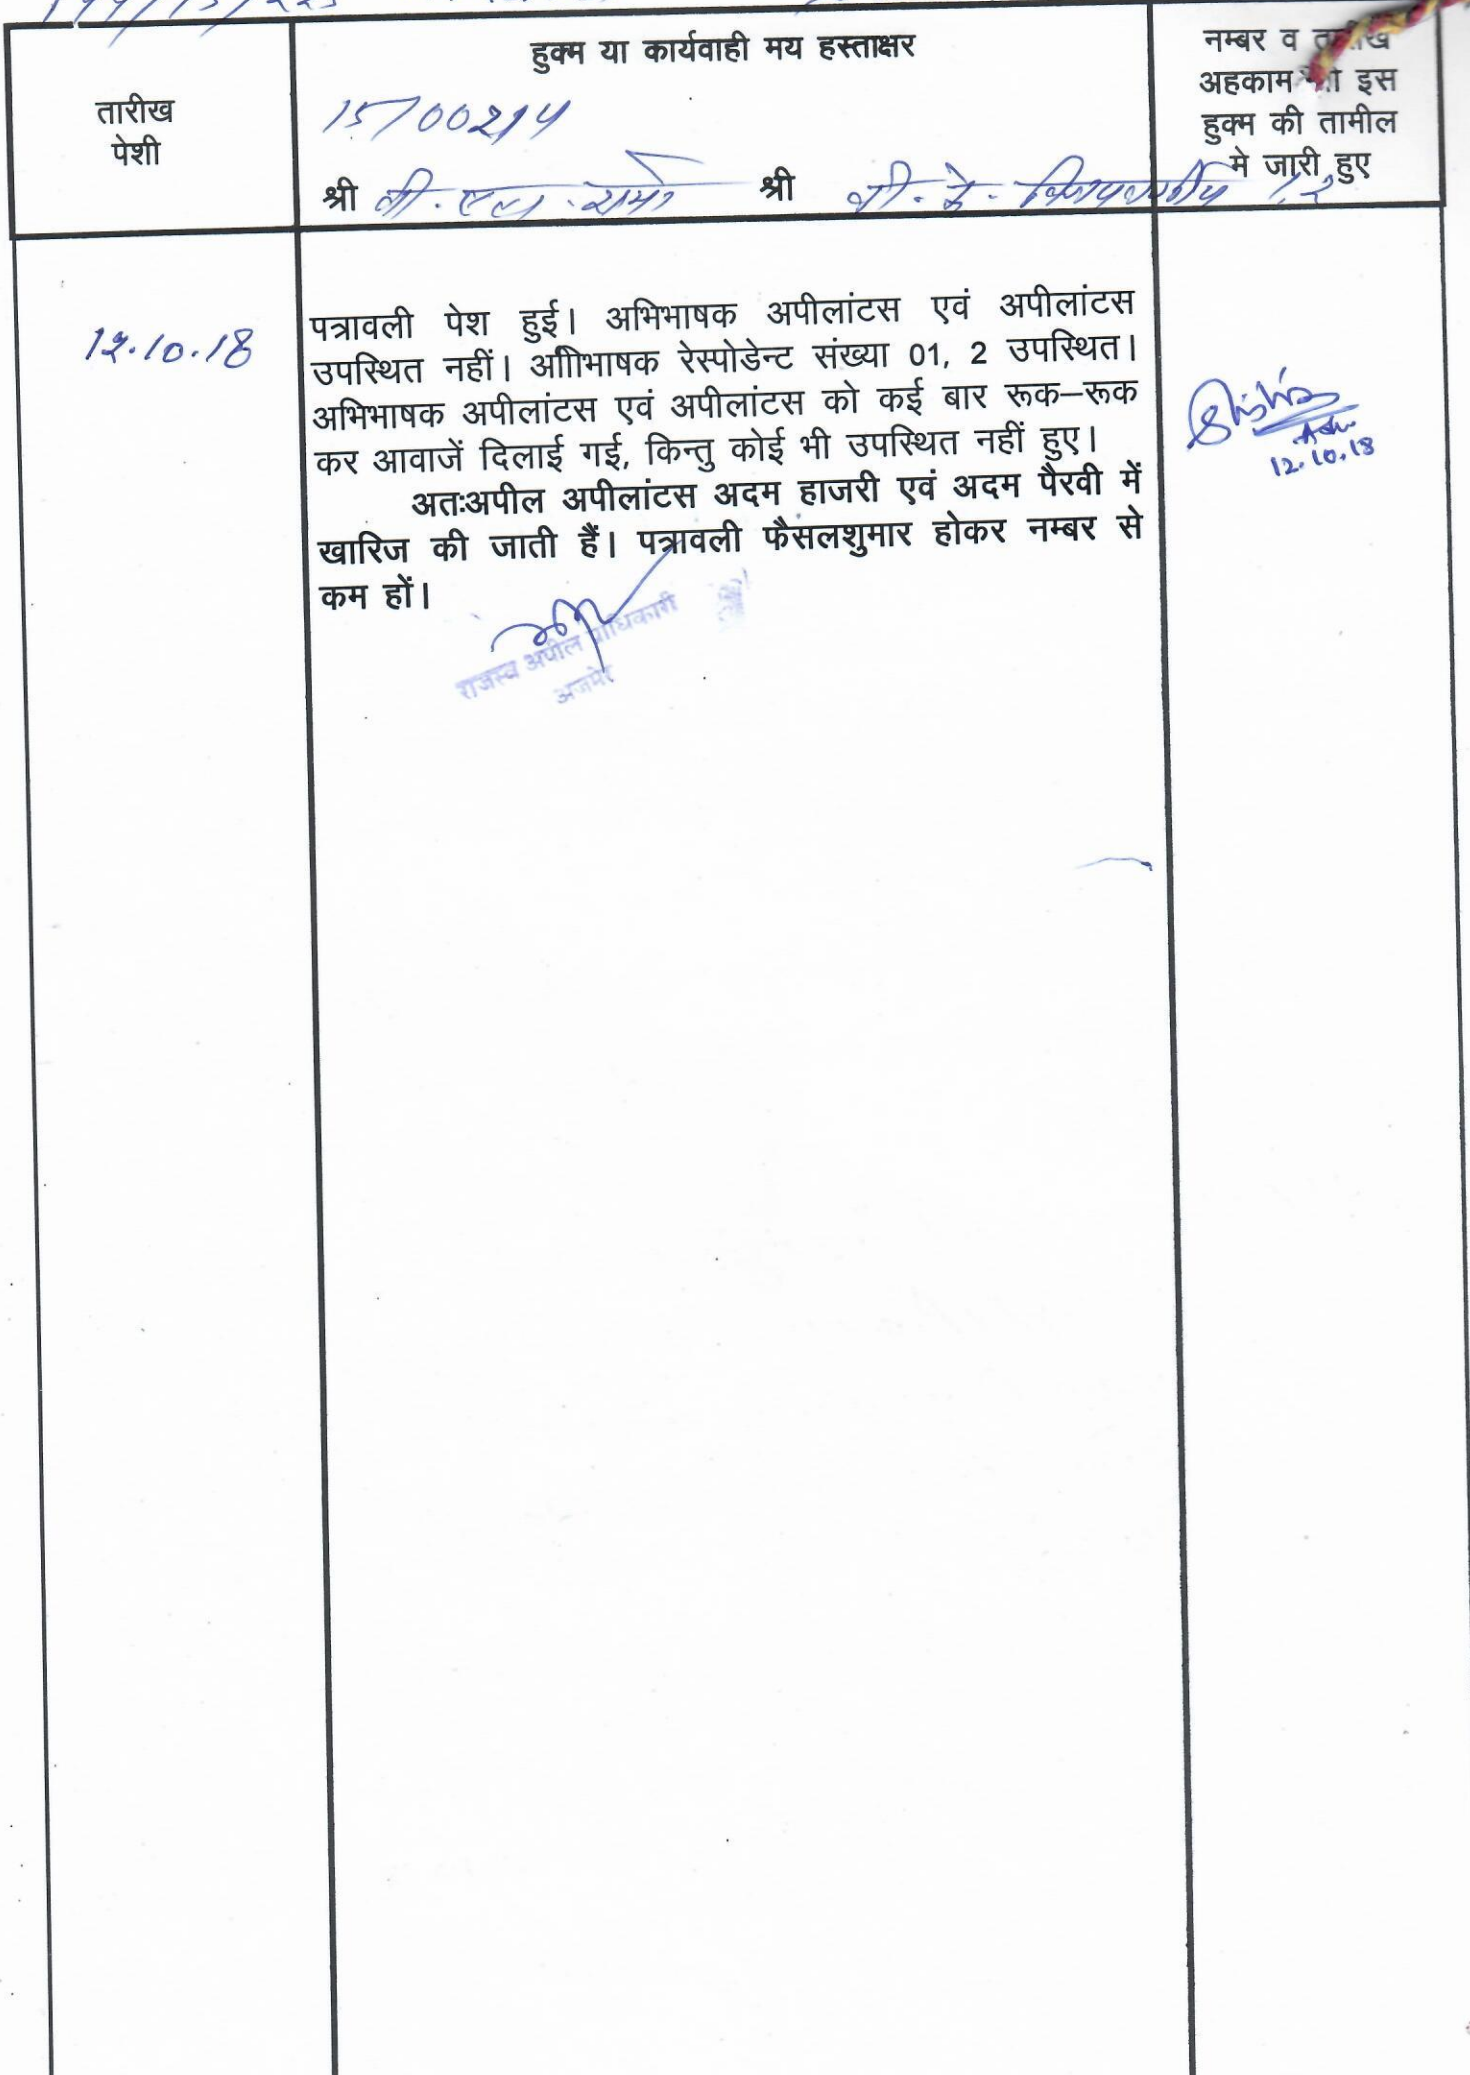 हुक्म या कार्यवाही मय हस्ताक्षर
तारीख
पेशी
15/00214
श्री बी. एल. शर्मा श्री बी. के. विजयवर्गीय 1,2
नम्बर व तारीख
अहकाम जो इस
हुक्म की तामील
मे जारी हुए
12.10.18
पत्रावली पेश हुई। अभिभाषक अपीलांटस एवं अपीलांटस
उपस्थित नहीं। अाीिभाषक रेस्पोडेन्ट संख्या 01, 2 उपस्थित।
अभिभाषक अपीलांटस एवं अपीलांटस को कई बार रूक–रूक
कर आवाजें दिलाई गई, किन्तु कोई भी उपस्थित नहीं हुए।
अतःअपील अपीलांटस अदम हाजरी एवं अदम पैरवी में
खारिज की जाती हैं। पत्रावली फैसलशुमार होकर नम्बर से
कम हों।
राजस्व अपील प्राधिकारी
अजमेर
Adv
12.10.18